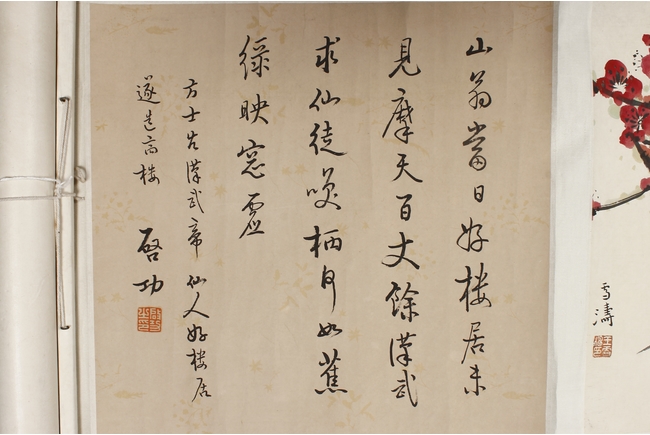 山翁當日好楼居未
見摩天百丈餘漢武
求仙徒栖何如蕉
綠映窓虛
方士告漢武帝仙人好楼居
遂造高楼
啓功
雪濤